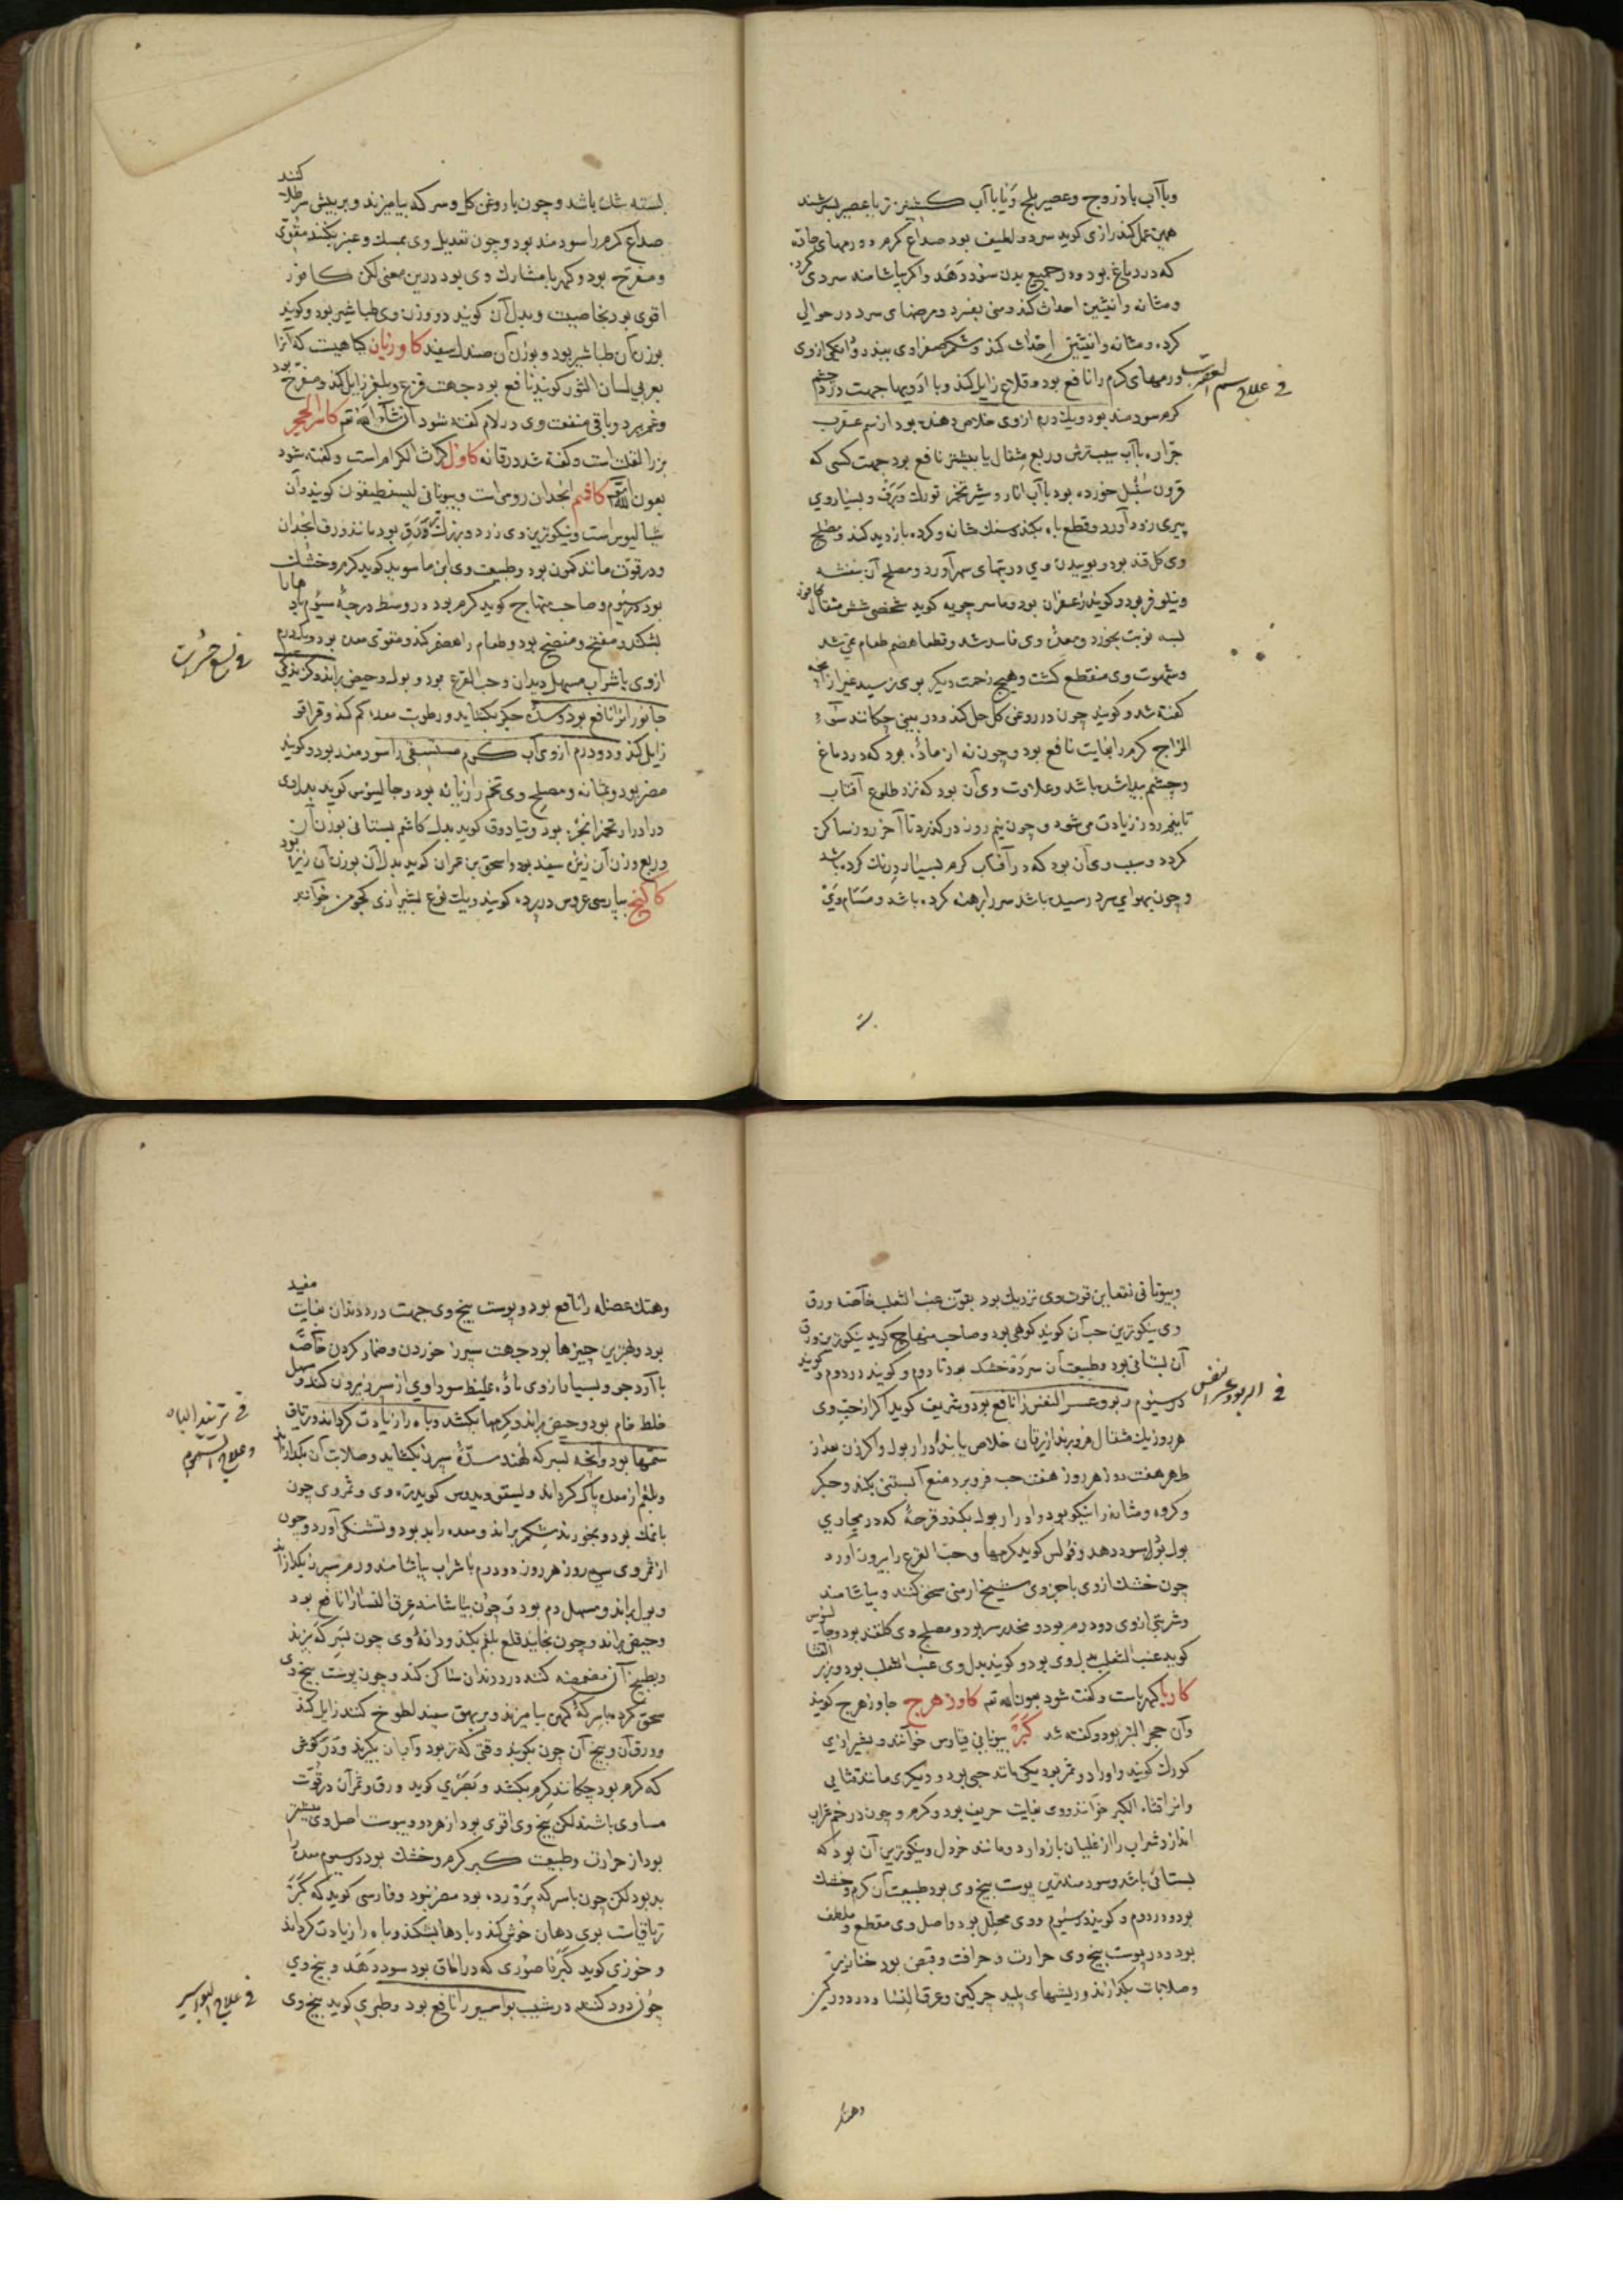 وبا آب بادروج وعصیر بلح ویا با آب کشنیز تر یا عصیر بسرشند
همین عمل کند رازی کوید سرد ولطیف بود صداع کرم وورمهای حاده
که در دماغ بود ودر جمیع بدن سود دهد واکر بیاشامند سردی کرده
ومثانه وانثیین احداث کند ومنی بفسرد ومرضهای سرد در حوالی
کرده ومثانه وانثیین احداث کند وشکم صفراوی ببندد ودانکی ازوی
ورمهای کرم را نافع بود وقلاع زایل کند وبا ادویها جهت درد چشم
فی علاج سم العقرب
کرم سودمند بود ویک درم ازوی خلاص دهنده بود از سم عقرب
جراره با آب سیب ترش وربع مثقال یا بیشتر نافع بود جهت کسی که
قرون سنبل خورده بود با آب انار وشیر تخم تورک وبرف وبسیار وی
پیری زود آورد وقطع باه بکند وسنک مثانه وکرده بازدید کند ومصلح
وی کل قند بود وبوییدن وی در تبهای سهر آورد ومصلح آن بنفشه
ونیلوفر بود وکویند زعفران بود وماسرجویه کوید شخصی شش مثقال کافور
بسه نوبت بخورد ومعده وی فاسد شد وقطعا هضم طعام نمی شد
وشهوت وی منقطع کشت وهیچ زحمت دیکر بوی نرسید غیر از آنچه
کفته شد وکویند چون در روغن کل حل کند ودر بینی چکانند سوء
المزاج کرم را بغایت نافع بود وچون نه از ماده بود که در دماغ
وچشم پیدا شده باشد وعلاوت وی آن بود که نزد طلوع آفتاب
تا بنیم روز زیادت می شود وچون نیم روز در کذرد تا آخر روز ساکن
کردد وسبب وی آن بود که در آفتاب کرم بسیار درنک کرده باشد
وچون بهوای سرد رسیده باشد سر را برهنه کرده باشد ومسام وی
بسته شده باشد وچون با روغن کل وسرکه بیامیزند وبر پیش سر طلا کنند
صداع کرم را سودمند بود وچون تعدیل وی بمسک وعنبر بکنند مقوی
ومفرح بود وکهربا مشارک وی بود درین معنی لکن کافور
اقوی بود بخاصیت وبدل آن کویند دو وزن وی طباشیر بود وکویند
بوزن آن طباشیر بود وبوزن آن صندل سفید کاوزبان کیاهیست که آنرا
بعربی لسان الثور کویند نافع بود جهت فزع وبلغم زایل کند ومفرح بود
وغم ببرد وباقی منفعت وی در لام کفته شود ان شاء الله تع کاسر الحجر
بزر القلت است وکفته شد در قانه کاول کراث الکرم است وکفته شود
بعون الله تع کاشم انجدان رومی است وبیونانی لیسطیقون کویند وآن
سیالیوس است ونیکوترین وی زرد وبزرک ورق بود مانند ورق انجدان
ودر قوت مانند کمون بود وطبیعت وی ابن ماسویه کوید کرم وخشک
بود در سیوم وصاحب منهاج کوید کرم بود در وسط درجه سیوم بادها را
بشکند ومفتح ومنضج بود وطعام را هضم کند ومقوی معده بود ویک درم
فی لسع حشرات
ازوی با شراب مسهل دیدان وحب القرع بود وبول وحیض براند وکزیدکی
جانوران را نافع بود وسده جکر بکشاید ورطوبت معده کم کند وقراقر
زایل کند ودو درم ازوی آب کرم مستسقی را سودمند بود وکویند
مضر بود بمثانه ومصلح وی تخم رازیانه بود وجالینوس کوید بدل وی
در ادرار تخم انجره بود وتیادوق کوید بدل کاشم بستانی بوزن آن
وربع وزن آن زیره سفید بود واسحق بن عمران کوید بدل آن بوزن آن زیره بود
کاکنج بپارسی عروس در پرده کویند ویک نوع بشیرازی کجومن خوانند
وبیونانی نتعاین قوت وی نزدیک بود بقوت عنب الثعلب خاصه ورق
وی نیکوترین حب آن کویند کوهی بود وصاحب منهاج کوید نیکوترین ورق
آن بستانی بود وطبیعت آن سرد وخشک بود تا دوم وکویند در دوم وکویند
در سیوم ربو وعسر النفس را نافع بود وشریف کوید اکر از حب وی
فی الربو وعسر النفس
هر روز یک مثقال فرو برند از یرقان خلاص یابند وادرار بول واکر زن بعد از
طهر هفت روز هر روز هفت حب فرو برد منع آبستنی بکند وجکر
وکروه ومثانه را نیکو بود وادرار بول بکند وقرحه که در مجاری
بول بود سود دهد وفولس کوید کرمها وحب القرع را بیرون آورد
چون خشک ازوی با جزوی شیح ارمنی سحق کنند وبیاشامند
وشربتی ازوی دو درم بود ومخدر سر بود ومصلح وی کلقند بود وجالینوس
کوید عنب الثعلب بدل وی بود وکویند بدل وی عنب الثعلب بود وبزر القثا
کاربا کهرباست وکفته شود بعون الله تع کاوزهرج جاوزهرج کویند
وآن حجر البقر بود وکفته شد کبر بیونانی قپارس خوانند وبشیرازی
کورک کویند واو را دو ثمر بود یکی مانند حبی بود ودیکری مانند قثایی
وآنرا قثاء الکبر خوانند ووی بغایت حریف بود وکرم وچون در خم شراب
اندازد شراب را از غلیان باز دارد ومانند خردل ونیکوترین آن بود که
بستانی باشد وسودمندترین پوست بیخ وی بود طبیعت آن کرم وخشک
بود در دوم وکویند در سیوم ووی محلل بود واصل وی مقطع وملطف
بود ودر پوست بیخ وی حرارت وحرافت وقبض بود خنازیر
وصلابات بکدازند وریشهای پلید چرکین وعرق النسا ودرد ورکین
وهتک
وهتک عضله را نافع بود وپوست بیخ وی جهت درد دندان بغایت مفید
بود وبهترین چیزها بود جهت سپرز خوردن وضماد کردن خاصه
با آرد جو وبسیار ازوی ماده غلیظ سوداوی از سپرز بیرون کند ومسهل
خلط خام بود وحیض براند وکرمها بکشد وباه را زیادت کرداند وتریاق
فی تزیید الباه
وعلاج السموم
سمها بود وآنچه بسرکه نهند سده سپرز بکشاید وصلابت آن بکدازاند
وبلغم از معده پاک کرداند ودیسقوریدوس کوید تره وی وثمر وی چون
بانمک بود وبخورند شکم براند ومعده را بد بود وتشنکی آورد وچون
از ثمر وی سی روز هر روز دو درم با شراب بیاشامند ورم سپرز بکدازاند
وبول براند ومسهل دم بود وچون بیاشامند عرق النسا را نافع بود
وحیض براند وچون بخایند قلع بلغم بکند ودانه وی چون بسرکه بپزند
وبطبیخ آن مضمضه کنند درد دندان ساکن کند وچون پوست بیخ وی
سحق کرده با سرکه کهن بیامیزند وبر بهق سپید لطوخ کنند زایل کند
وورق آن وبیخ آن چون بکوبند وقتی که تر بود وآب آن بکیرند ودر کوش
که کرم بود چکانند کرم بکشد وبصری کوید ورق وثمر آن در قوت
مساوی باشند لکن بیخ وی اقوی بود از هر دو ویبوست اصل وی بیشتر
بود از حرارت وطبیعت کبر کرم وخشک بود در سیوم معده را
بد بود لکن چون با سرکه پرورده بود مضر نبود وفارسی کوید که کبر
تریاقیست بوی دهان خوش کند وبادها بشکند وباه را زیادت کرداند
وخوزی کوید کبر ناصوری که در اماق بود سود دهد وبیخ وی
چون دود کنند در شیب بواسیر را نافع بود وطبری کوید بیخ وی
فی علاج البواسیر